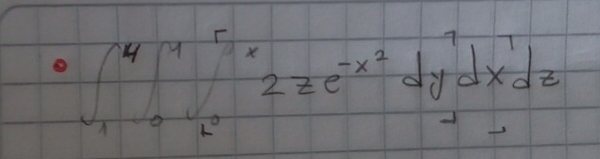 • ∫₁⁴ ∫₀¹ ∫₀ˣ 2ze^{-x²} dy dx dz